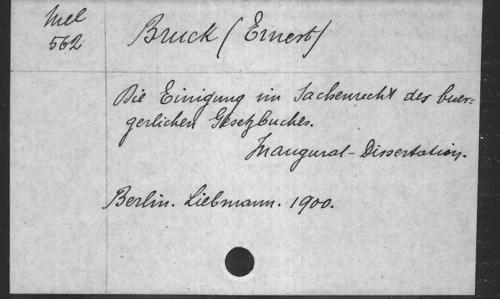 Mel
562
Bruck (Ernest)
Die Einigung im Sachenrecht des buer-
gerlichen Gesetzbuches.
Inaugural-Dissertation.
Berlin. Liebmann. 1900.